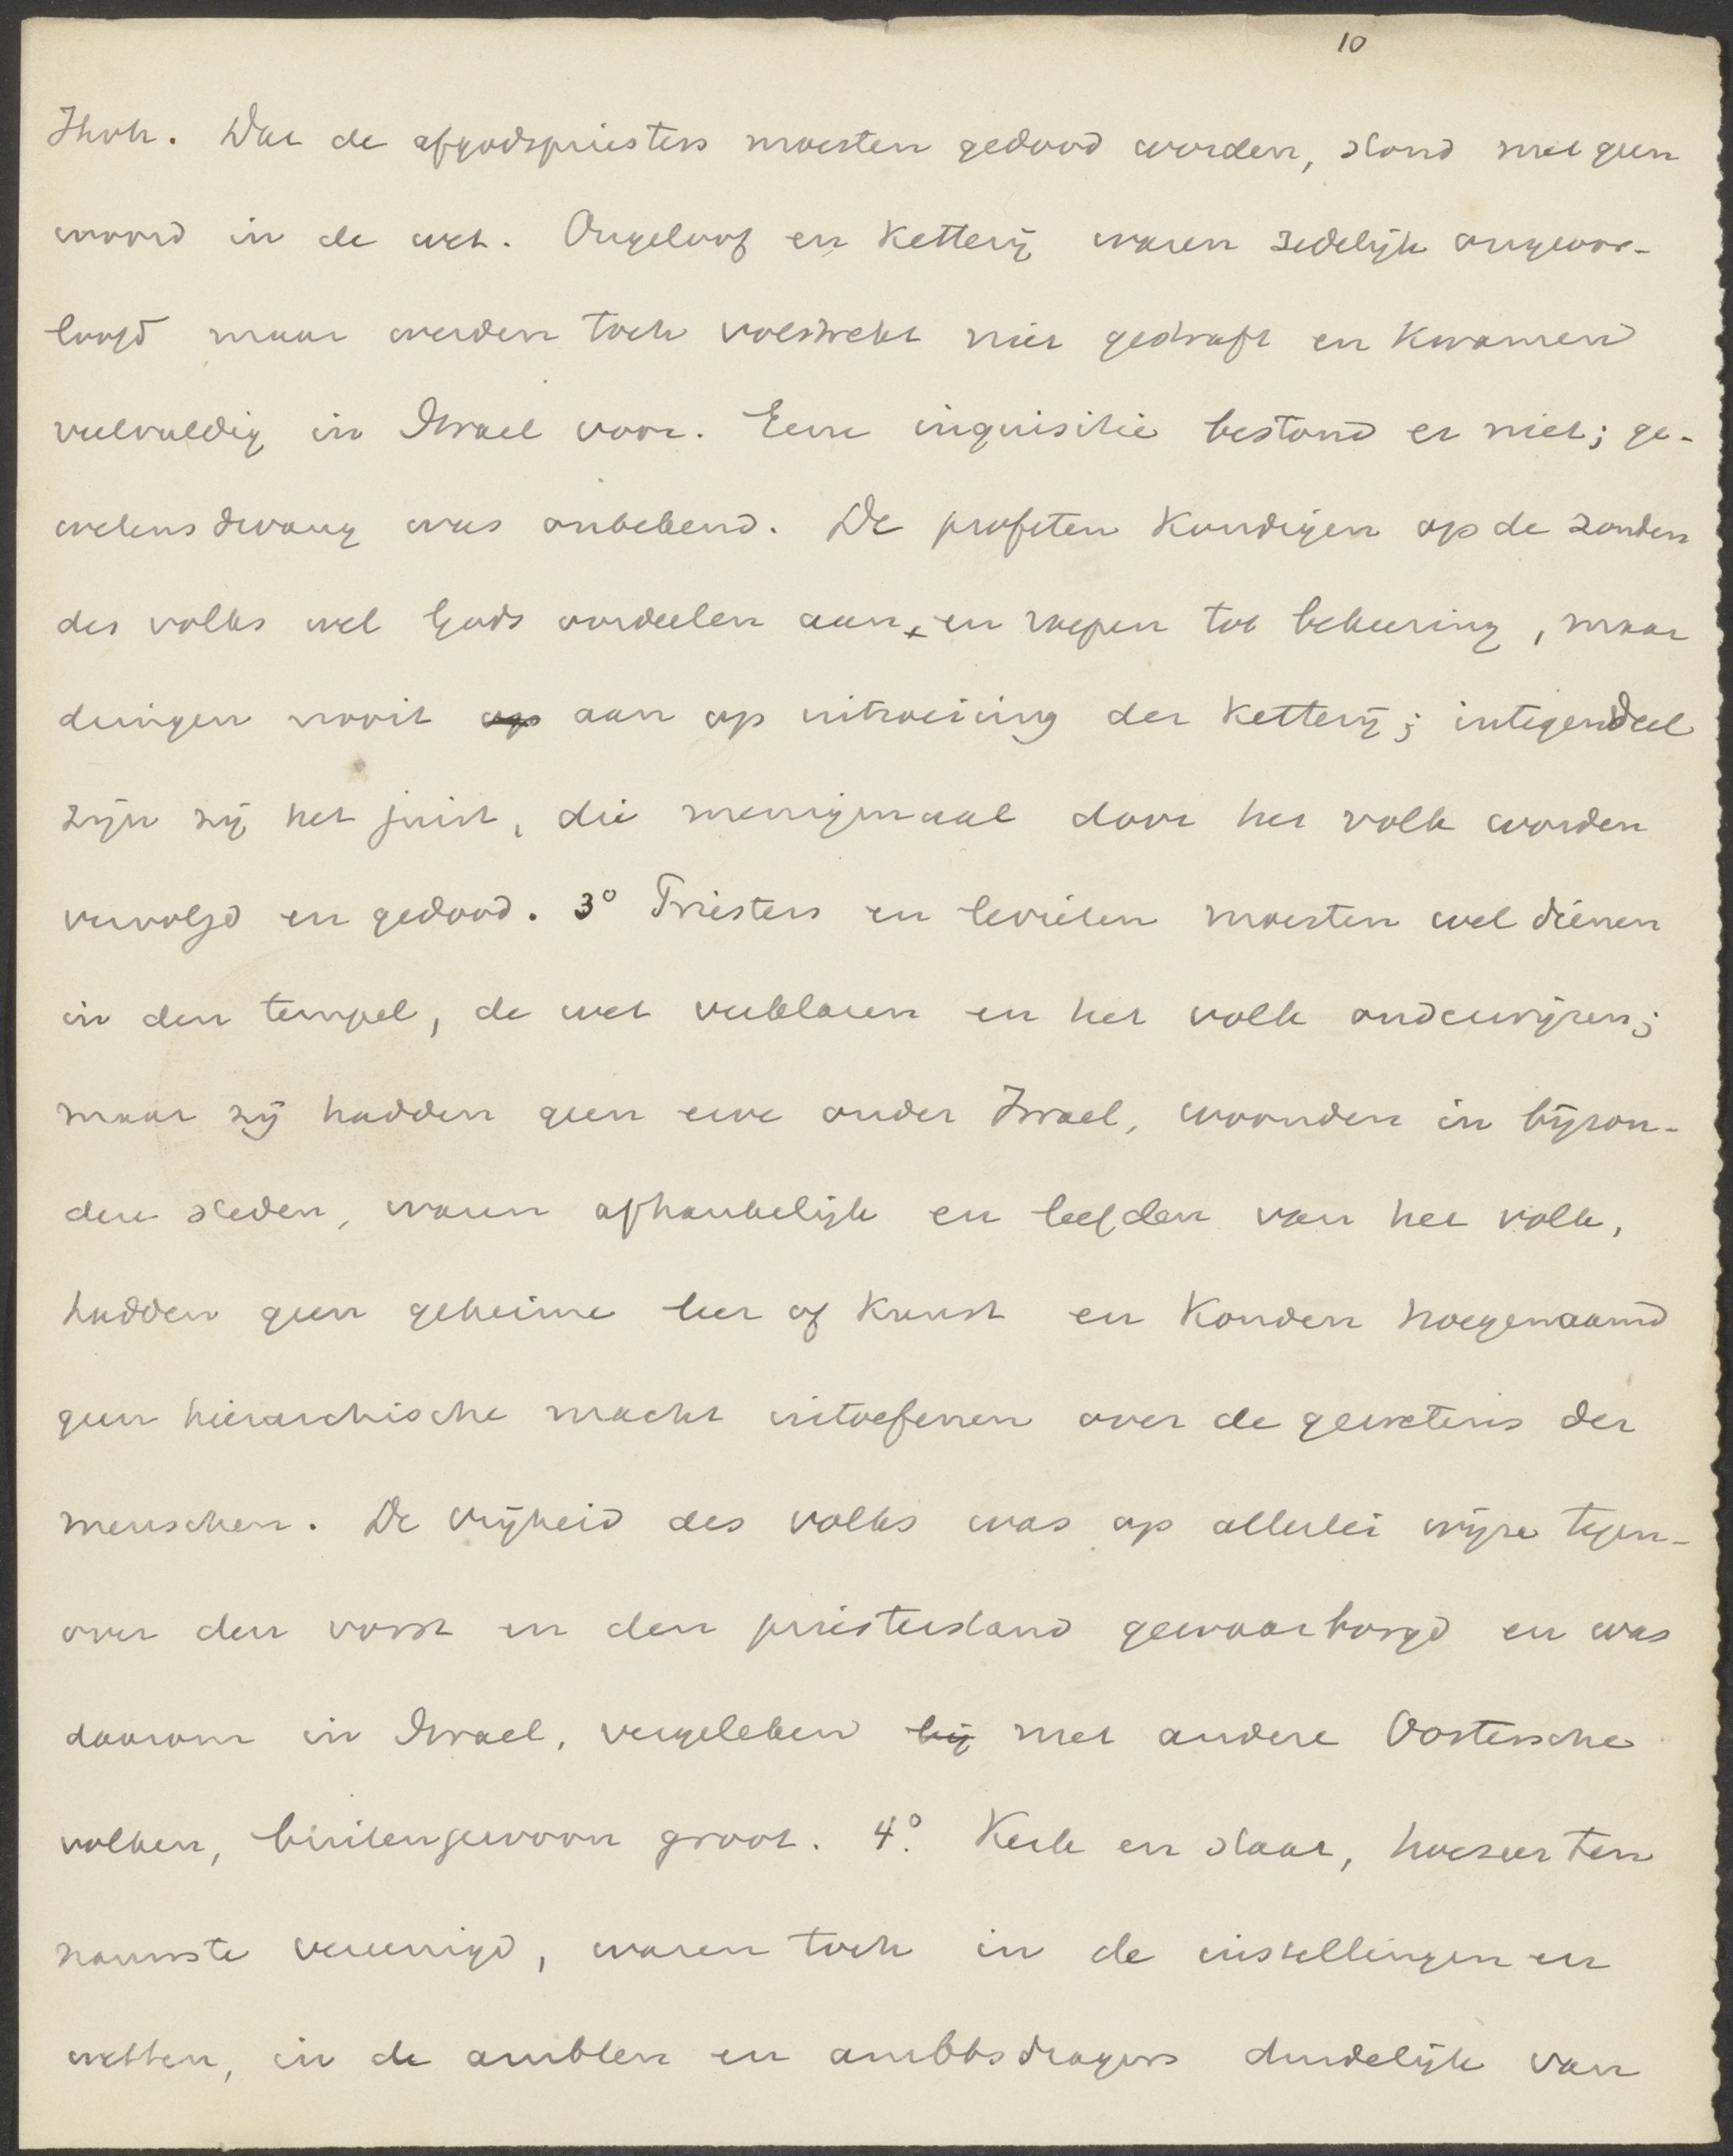 10
Jhvh. Dat de afgodspriesters moesten gedood worden, stond met geen
woord in de wet. Ongeloof en Ketterij waren zedelijk ongeoor-
loofd maar werden toch volstrekt niet gestraft en kwamen
veelvuldig in Israel voor. Eene inquisitie bestond er niet; ge-
wetensdwang was onbekend. De profeten kondigen op de zonden
des volks wel Gods oordeelen aan, en roepen tot bekeering, maar
dringen nooit op aan op uitroeiing der Ketterij; integendeel
zijn zij het juist, die menigmaal door het volk worden
vervolgd en gedood. 3° Priesters en levieten moesten wel dienen
in den tempel, de wet verklaren en het volk onderwijzen;
maar zij hadden geen erve onder Israel, woonden in bijzon-
dere steden, waren afhankelijk en leefden van het volk,
hadden geen geheime leer of kunst en konden hoegenaamd
geen hierarchische macht uitoefenen over de gewetens der
menschen. De vrijheid des volks was op allerlei wijze tegen-
over den vorst en den priesterstand gewaarborgd en was
daarom in Israel, vergeleken bij met andere Oostersche
volken, buitengewoon groot. 4° Kerk en staat, hoezeer ten
nauwste vereenigd, waren toch in de instellingen en
wetten, in de ambten en ambtsdragers duidelijk van